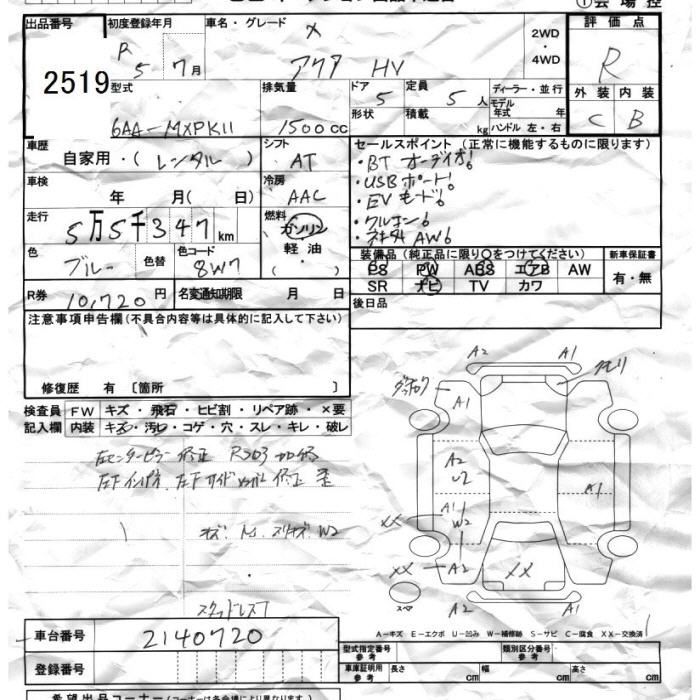 出品番号
2519
初度登録年月
R 5 7月
車名・グレード
アクア HV
2WD
・
4WD
評価点
R
外装 内装
C B
型式
6AA-MXPK11
排気量
1500cc
ドア 5
形状
定員 5人
積載 kg
ディーラー・並行
モデル年式 年
ハンドル 左・右
車歴
自家用・(レンタル)
シフト
AT
車検
年 月( 日)
冷房
AAC
走行
5万5千347km
燃料
ガソリン
軽油
( )
色
ブルー
色替
色コード
8W7
R券
10,720円
名変通知期限 月 日
セールスポイント (正常に機能するものに限ります)
・BTオーディオ!
・USBポート!
・EVモード!
・クルコン!
装備品 (純正品に限り○をつけてください)
PS PW ABS エアB AW
SR ナビ TV カワ
新車保証書
有・無
後日品
注意事項申告欄 (不具合内容等は具体的に記入して下さい)
修復歴 有 〔箇所 〕
検査員
記入欄
FW キズ・飛石・ヒビ割・リペア跡・×要
内装 キズ・汚し・コゲ・穴・スレ・キレ・破レ
左センターピラー修正
A2 A1
A1
A2
U2
A1
A1
W2
XX
XX A2
XX
A1
A2 A1
スペア
A-キズ E-エクボ U-凹み W-補修跡 S-サビ C-腐食 XX-交換済
スタッドレス
車台番号
2140720
登録番号
型式指定番号
参考
類別区分番号
参考
車庫証明用
参考
長さ cm 幅 cm 高さ cm
希望出品コーナー